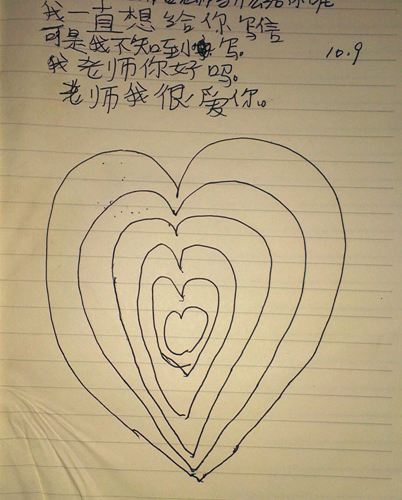 给你呢
我一直想给你写信
可是我不知到写。 10.9
我老师你好吗。
老师我很爱你。